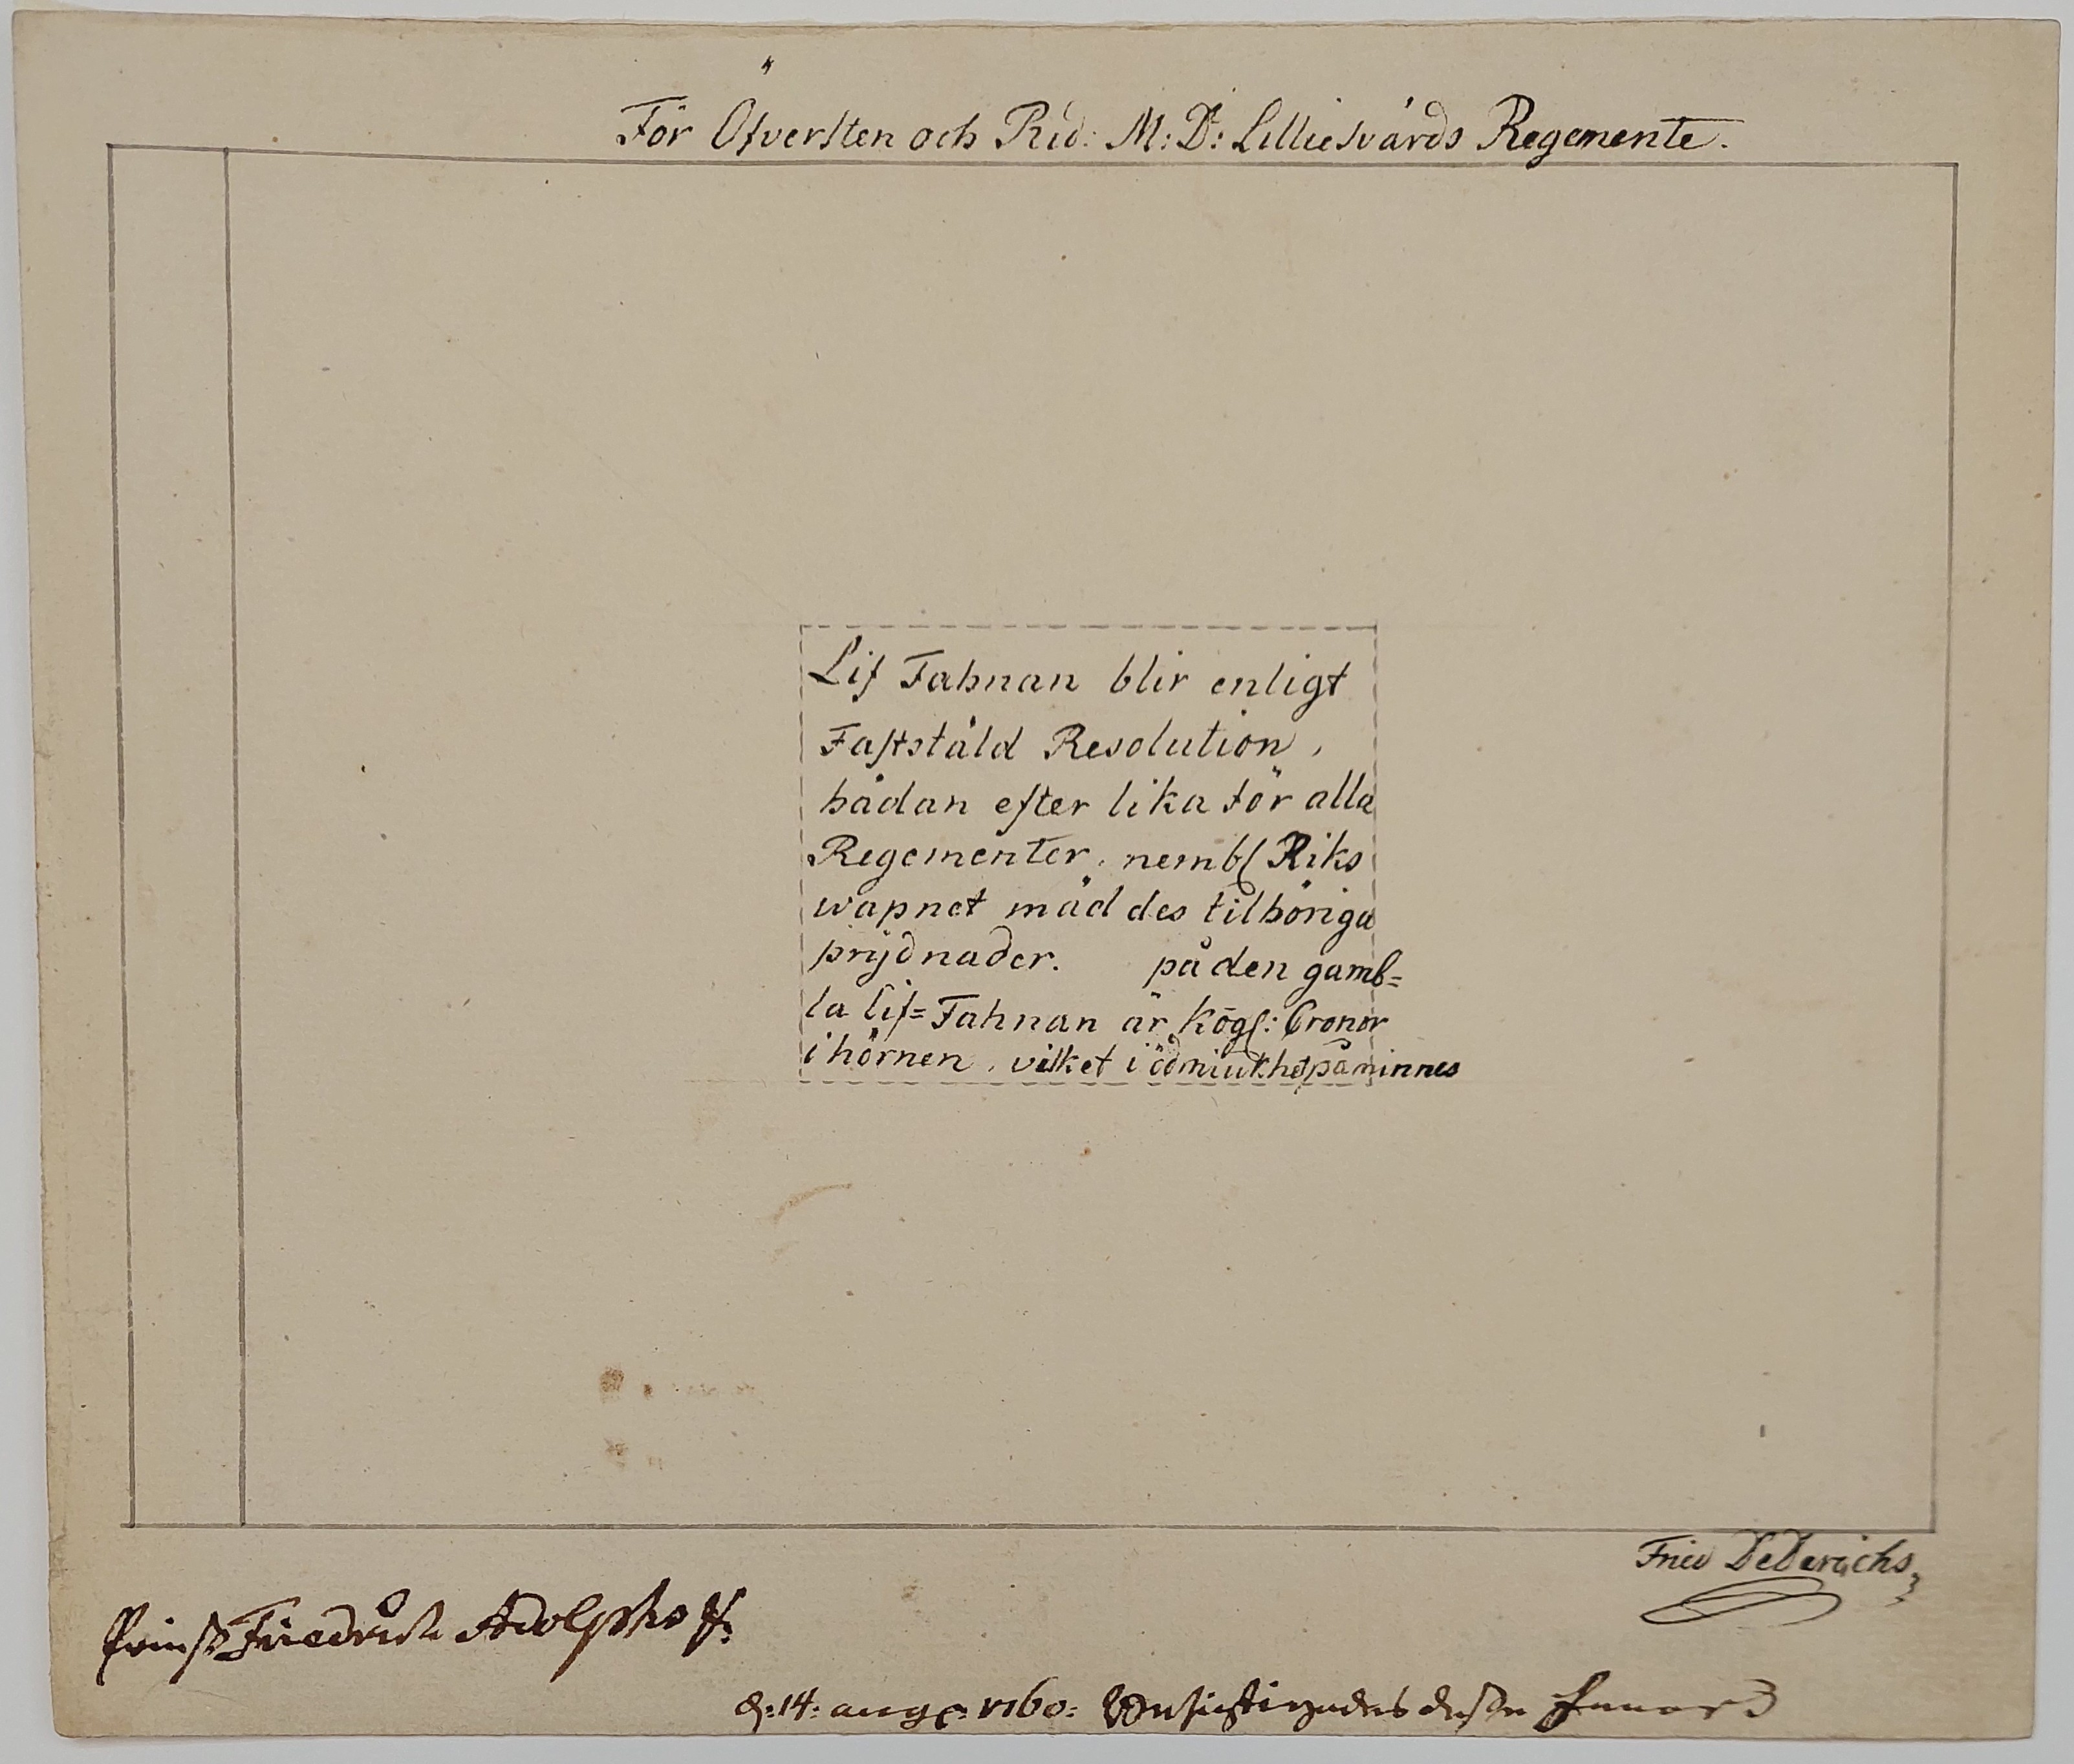 För Öfversten och Rid: M: Dt: Lilliesvärds Regemente.
Lif Fahnan blir enligt
Fastståld Resolution,
hådan efter lika för alla
Regementer, nembl Riks
wapnet mäd des tilhöriga
prÿdnader. på den gamb=
la lif=Fahnan är Kögl: Cronor
i hörnen, vilket i ödmiukhet påminnes
Fried Dederichs
Prins Friedrich Adolphs
d: 14: aug: 1760: besichtigades desse fanor